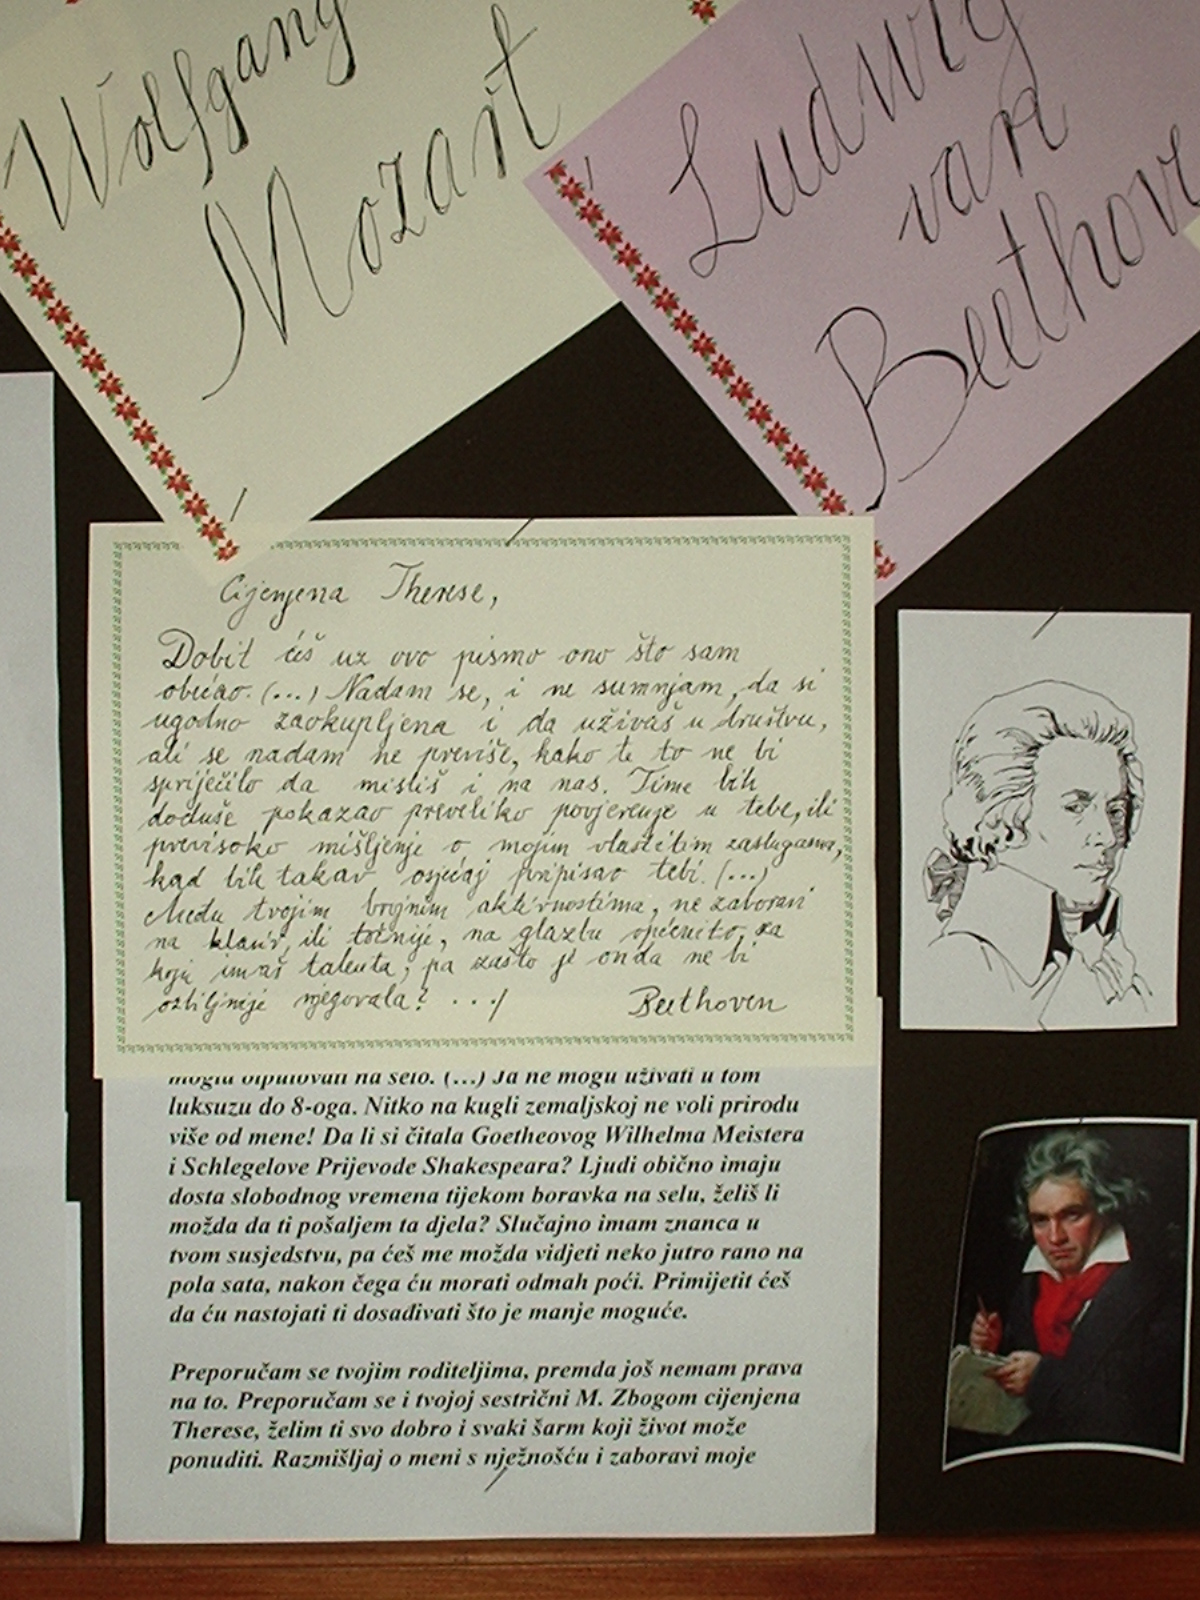 Wolfgang
Mozart
Ludwig
van
Beethove
Cijenjena Therese,
Dobit ćeš uz ovo pismo ono što sam
obećao. (...) Nadam se, i ne sumnjam, da si
ugodno zaokupljena i da uživaš u društvu,
ali se nadam ne previše, kako te to ne bi
spriječilo da misliš i na nas. Time bih
doduše pokazao preveliko povjerenje u tebe, ili
previsoko mišljenje o mojim vlastitim zaslugama,
kad bih takav osjećaj pripisao tebi. (...)
Među tvojim brojnim aktivnostima, ne zaboravi
na klavir, ili točnije, na glazbu općenito, za
koju imaš talenta, pa zašto je onda ne bi
ozbiljnije njegovala? .../ Beethoven
mogla otputovati na selo. (...) Ja ne mogu uživati u tom
luksuzu do 8-oga. Nitko na kugli zemaljskoj ne voli prirodu
više od mene! Da li si čitala Goetheovog Wilhelma Meistera
i Schlegelove Prijevode Shakespeara? Ljudi obično imaju
dosta slobodnog vremena tijekom boravka na selu, želiš li
možda da ti pošaljem ta djela? Slučajno imam znanca u
tvom susjedstvu, pa ćeš me možda vidjeti neko jutro rano na
pola sata, nakon čega ću morati odmah poći. Primijetit ćeš
da ću nastojati ti dosađivati što je manje moguće.
Preporučam se tvojim roditeljima, premda još nemam prava
na to. Preporučam se i tvojoj sestrični M. Zbogom cijenjena
Therese, želim ti svo dobro i svaki šarm koji život može
ponuditi. Razmišljaj o meni s nježnošću i zaboravi moje